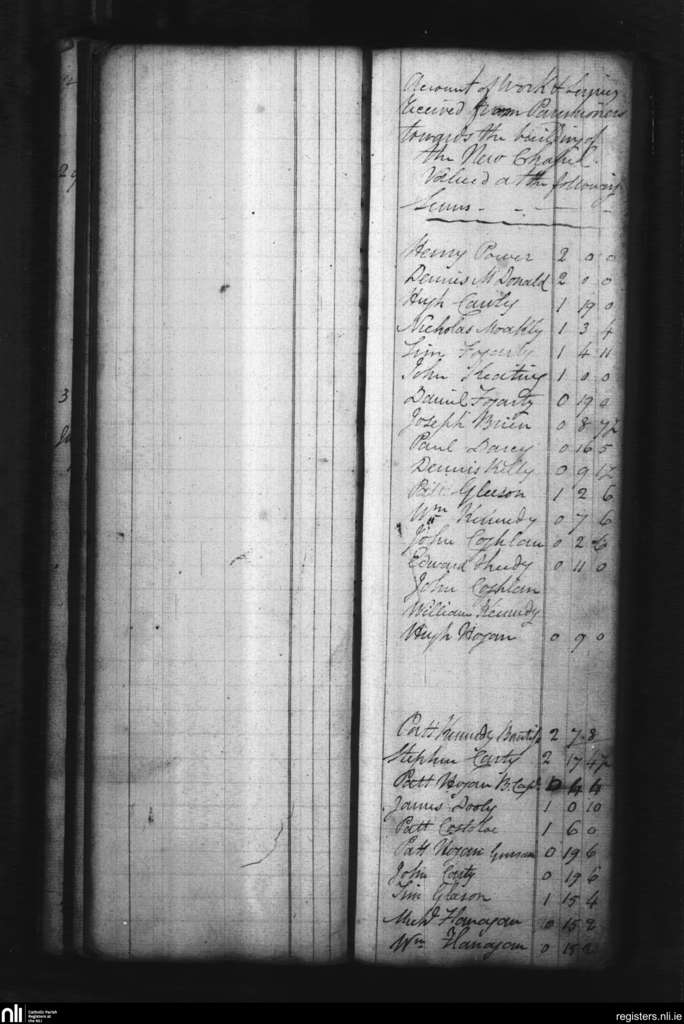 Account of Work &
received from Parishioners
towards the building of
the New Chapel.
Valued at the following
Sums
Henry Power 2 0 0
Dennis McDonald 2 0 0
Hugh 1 19 0
Nicholas Moakly 1 3 4
Tim Fogarty 1 4 11
John Keating 1 0 0
Daniel Fogarty 0 19 0
Joseph Brien 0 8 7½
Paul Darcy 0 16 5
Dennis Kelly 0 9
Patt Gleeson 1 2 6
Wm Kennedy 0 7 6
John Coghlan 0 2 6
Edward 0 11 0
John Coghlan
William Kennedy
Hugh Hogan 0 9 0
Patt Kennedy 2 7 8
Stephen Carty 2 17 4½
Patt Hogan 4 4
James Dooly 1 0 10
Patt Costoloe 1 6 0
Patt Hogan 0 19 6
John Carty 0 19 6
Tim Gleeson 1 15 4
Michl Flanagan 0 15 2
Wm Flanagan 0 15
nli
Catholic Parish
Registers at
the NLI
registers.nli.ie